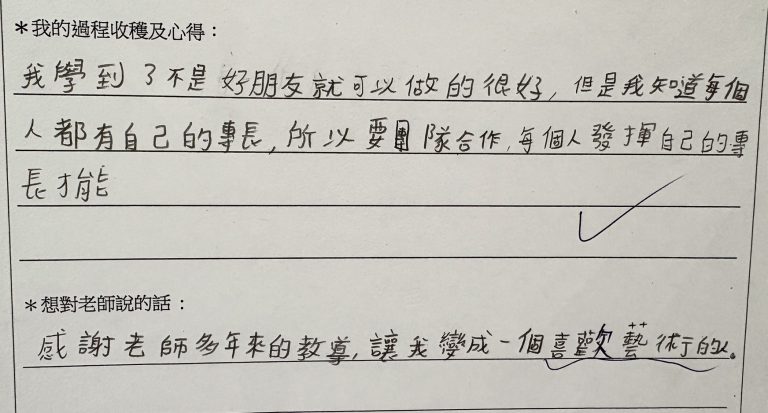 ＊我的過程收穫及心得：
我學到了不是好朋友就可以做的很好，但是我知道每個
人都有自己的專長，所以要團隊合作，每個人發揮自己的專
長才能
＊想對老師說的話：
感謝老師多年來的教導，讓我變成一個喜歡藝術的人。